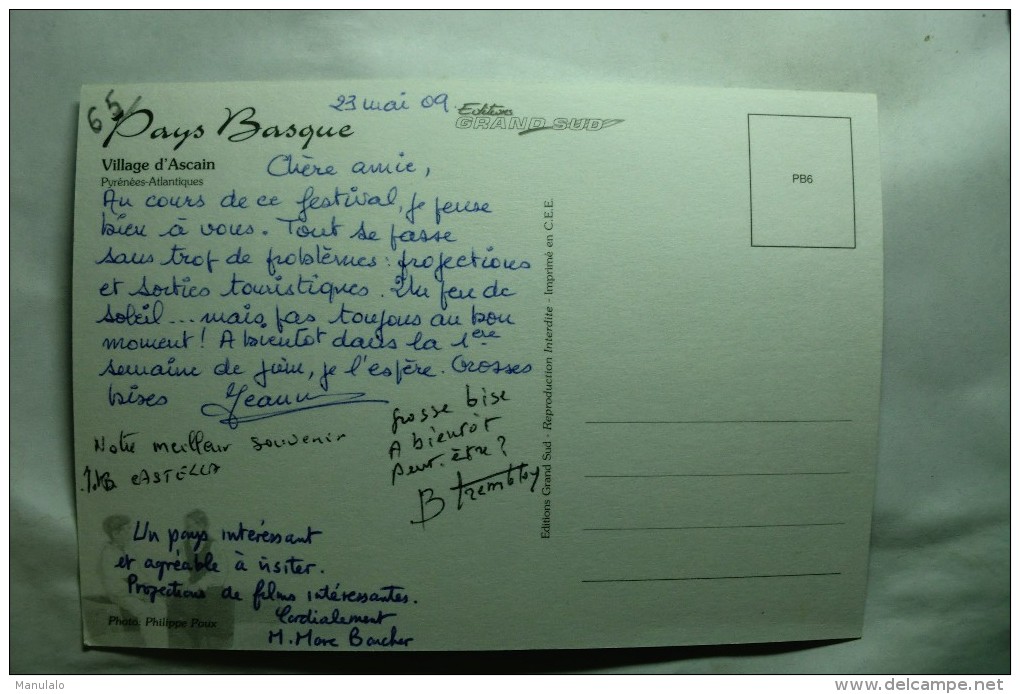 65
23 mai 09.
Pays Basque
Editions
GRAND SUD
Village d'Ascain
Pyrénées-Atlantiques
PB6
Chère amie,
Au cours de ce festival, je pense
bien à vous. Tout se passe
sans trop de problèmes : projections
et sorties touristiques. Un peu de
soleil... mais pas toujours au bon
moment ! A bientôt dans la 1ère
semaine de juin, je l'espère. Grosses
bises Jeann
Grosse bise
A bientôt
Peut-être ?
B Tremblay
Notre meilleur souvenir
CASTELLA
Un pays intéressant
et agréable à visiter.
Projections de films intéressantes.
Cordialement
M. Marc Boucher
Photo: Philippe Poux
Editions Grand Sud - Reproduction Interdite - Imprimé en C.E.E.
Manulalo
delcampe.net